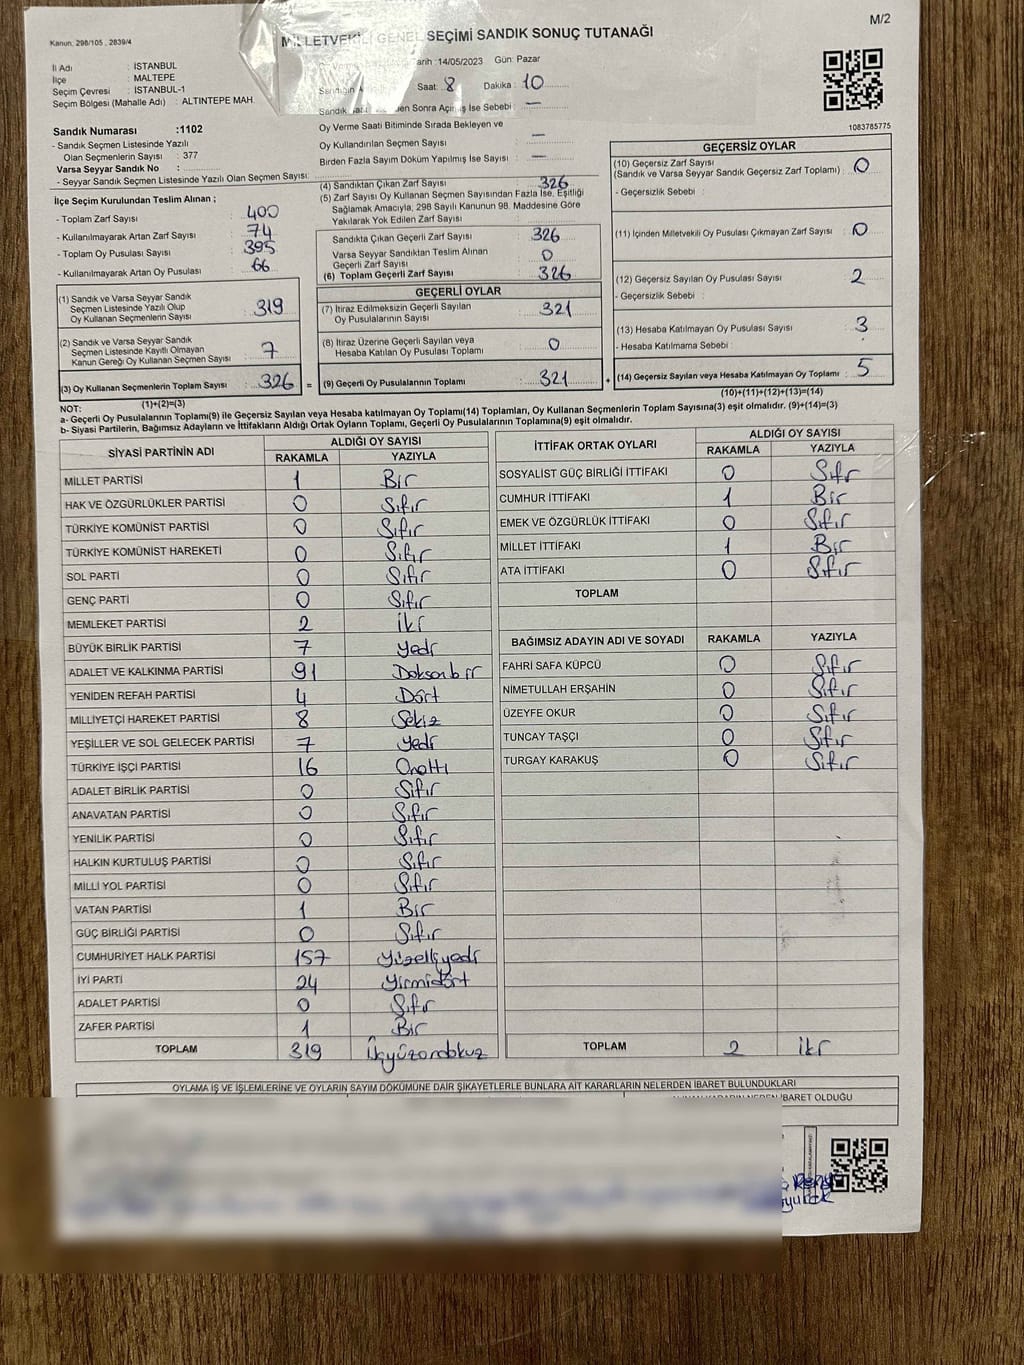 M/2
Kanun, 298/105 , 2839/4
MİLLETVEKİLİ GENEL SEÇİMİ SANDIK SONUÇ TUTANAĞI
İl Adı : İSTANBUL
İlçe : MALTEPE
Seçim Çevresi : İSTANBUL-1
Seçim Bölgesi (Mahalle Adı) : ALTINTEPE MAH.
Tarih :14/05/2023 Gün: Pazar
Saat: 8 Dakika : 10
Sonra Açılmış İse Sebebi : —
Oy Verme Saati Bitiminde Sırada Bekleyen ve
Oy Kullandırılan Seçmen Sayısı : —
Birden Fazla Sayım Döküm Yapılmış İse Sayısı : —
1083785775
Sandık Numarası :1102
- Sandık Seçmen Listesinde Yazılı
Olan Seçmenlerin Sayısı : 377
Varsa Seyyar Sandık No :
- Seyyar Sandık Seçmen Listesinde Yazılı Olan Seçmen Sayısı:
İlçe Seçim Kurulundan Teslim Alınan ;
- Toplam Zarf Sayısı : 400
- Kullanılmayarak Artan Zarf Sayısı : 74
- Toplam Oy Pusulası Sayısı : 395
- Kullanılmayarak Artan Oy Pusulası : 66
(1) Sandık ve Varsa Seyyar Sandık
Seçmen Listesinde Yazılı Olup
Oy Kullanan Seçmenlerin Sayısı : 319
(2) Sandık ve Varsa Seyyar Sandık
Seçmen Listesinde Kayıtlı Olmayan
Kanun Gereği Oy Kullanan Seçmen Sayısı : 7
(3) Oy Kullanan Seçmenlerin Toplam Sayısı : 326 =
(1)+(2)=(3)
(4) Sandıktan Çıkan Zarf Sayısı : 326
(5) Zarf Sayısı Oy Kullanan Seçmen Sayısından Fazla İse, Eşitliği
Sağlamak Amacıyla, 298 Sayılı Kanunun 98. Maddesine Göre
Yakılarak Yok Edilen Zarf Sayısı :
Sandıkta Çıkan Geçerli Zarf Sayısı : 326
Varsa Seyyar Sandıktan Teslim Alınan
Geçerli Zarf Sayısı : 0
(6) Toplam Geçerli Zarf Sayısı : 326
GEÇERLİ OYLAR
(7) İtiraz Edilmeksizin Geçerli Sayılan
Oy Pusulalarının Sayısı : 321
(8) İtiraz Üzerine Geçerli Sayılan veya
Hesaba Katılan Oy Pusulası Toplamı : 0
(9) Geçerli Oy Pusulalarının Toplamı : 321 +
GEÇERSİZ OYLAR
(10) Geçersiz Zarf Sayısı
(Sandık ve Varsa Seyyar Sandık Geçersiz Zarf Toplamı) : 0
- Geçersizlik Sebebi :
(11) İçinden Milletvekili Oy Pusulası Çıkmayan Zarf Sayısı : 0
(12) Geçersiz Sayılan Oy Pusulası Sayısı : 2
- Geçersizlik Sebebi :
(13) Hesaba Katılmayan Oy Pusulası Sayısı : 3
- Hesaba Katılmama Sebebi :
(14) Geçersiz Sayılan veya Hesaba Katılmayan Oy Toplamı : 5
(10)+(11)+(12)+(13)=(14)
NOT:
a- Geçerli Oy Pusulalarının Toplamı(9) ile Geçersiz Sayılan veya Hesaba katılmayan Oy Toplamı(14) Toplamları, Oy Kullanan Seçmenlerin Toplam Sayısına(3) eşit olmalıdır. (9)+(14)=(3)
b- Siyasi Partilerin, Bağımsız Adayların ve İttifakların Aldığı Ortak Oyların Toplamı, Geçerli Oy Pusulalarının Toplamına(9) eşit olmalıdır.
SİYASİ PARTİNİN ADI ALDIĞI OY SAYISI
RAKAMLA YAZIYLA
MİLLET PARTİSİ 1 Bir
HAK VE ÖZGÜRLÜKLER PARTİSİ 0 Sıfır
TÜRKİYE KOMÜNİST PARTİSİ 0 Sıfır
TÜRKİYE KOMÜNİST HAREKETİ 0 Sıfır
SOL PARTİ 0 Sıfır
GENÇ PARTİ 0 Sıfır
MEMLEKET PARTİSİ 2 İki
BÜYÜK BİRLİK PARTİSİ 7 Yedi
ADALET VE KALKINMA PARTİSİ 91 Doksanbir
YENİDEN REFAH PARTİSİ 4 Dört
MİLLİYETÇİ HAREKET PARTİSİ 8 Sekiz
YEŞİLLER VE SOL GELECEK PARTİSİ 7 Yedi
TÜRKİYE İŞÇİ PARTİSİ 16 Onaltı
ADALET BİRLİK PARTİSİ 0 Sıfır
ANAVATAN PARTİSİ 0 Sıfır
YENİLİK PARTİSİ 0 Sıfır
HALKIN KURTULUŞ PARTİSİ 0 Sıfır
MİLLİ YOL PARTİSİ 0 Sıfır
VATAN PARTİSİ 1 Bir
GÜÇ BİRLİĞİ PARTİSİ 0 Sıfır
CUMHURİYET HALK PARTİSİ 157 Yüzelliyedi
İYİ PARTİ 24 Yirmidört
ADALET PARTİSİ 0 Sıfır
ZAFER PARTİSİ 1 Bir
TOPLAM 319 Üçyüzondokuz
İTTİFAK ORTAK OYLARI ALDIĞI OY SAYISI
RAKAMLA YAZIYLA
SOSYALİST GÜÇ BİRLİĞİ İTTİFAKI 0 Sıfır
CUMHUR İTTİFAKI 1 Bir
EMEK VE ÖZGÜRLÜK İTTİFAKI 0 Sıfır
MİLLET İTTİFAKI 1 Bir
ATA İTTİFAKI 0 Sıfır
TOPLAM
BAĞIMSIZ ADAYIN ADI VE SOYADI RAKAMLA YAZIYLA
FAHRİ SAFA KÜPCÜ 0 Sıfır
NİMETULLAH ERŞAHİN 0 Sıfır
ÜZEYFE OKUR 0 Sıfır
TUNCAY TAŞÇI 0 Sıfır
TURGAY KARAKUŞ 0 Sıfır
TOPLAM 2 İki
OYLAMA İŞ VE İŞLEMLERİNE VE OYLARIN SAYIM DÖKÜMÜNE DAİR ŞİKAYETLERLE BUNLARA AİT KARARLARIN NELERDEN İBARET BULUNDUKLARI
İBARET OLDUĞU